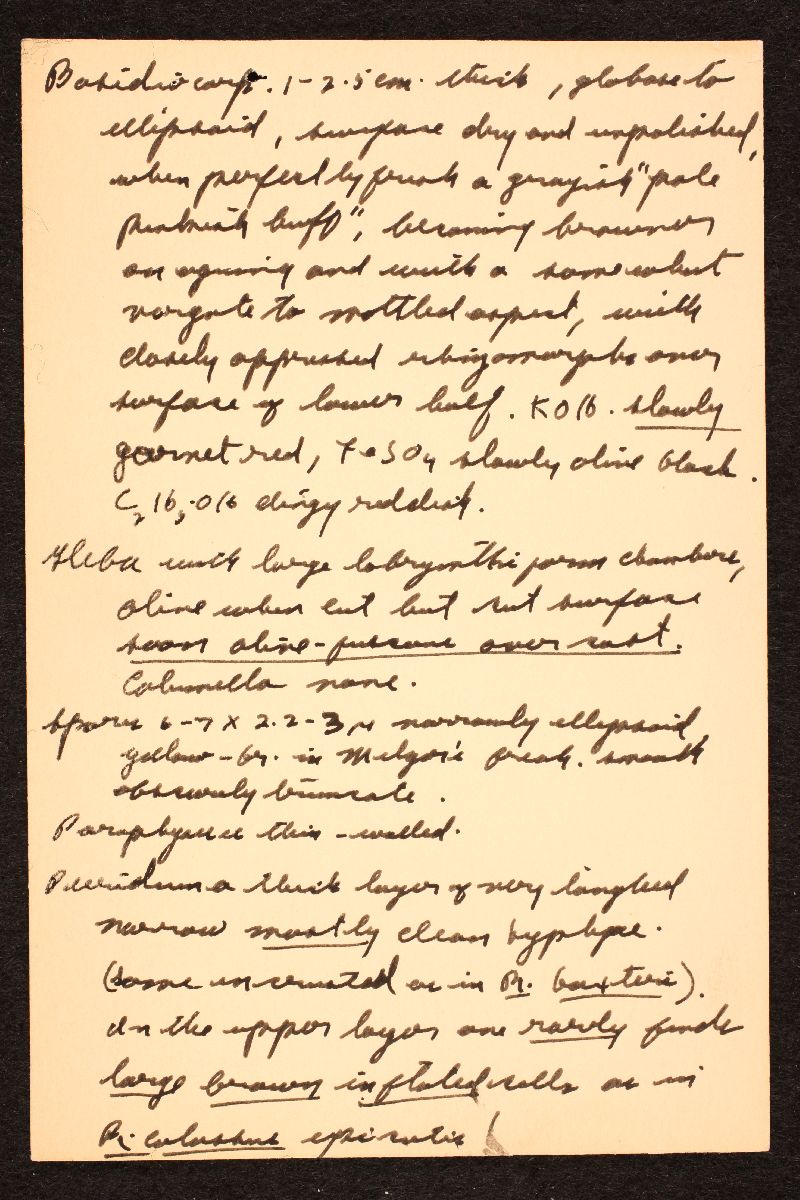 Basidiocarp. 1-2.5 cm. thick, globose to
ellipsoid, surface dry and unpolished,
when perfectly fresh a grayish "pale
pinkish buff", becoming browner
on aguing and with a somewhat
vargate to mottled aspect, with
closely appressed rhizomorphs over
surface of lower half. KOH. slowly
garnet red, FeSO4 slowly olive black.
C2H5.OH dingy reddish.
Gleba with large labrynthiform chambers,
olive when cut but cut surface
soon olive-fuscous over cast.
Columella none.
Spores 6-7 x 2.2-3 µ narrowly ellipsoid
yellow-br. in Melzer's fresh. smooth
obscurely truncate.
Paraphyses thin-walled.
Peridium a thick layer of very tangled
narrow mostly clean hyphae.
(some incrusted as in R. baxteri).
In the upper layer one rarely finds
large brown inflated cells as in
R. colossus epicutis